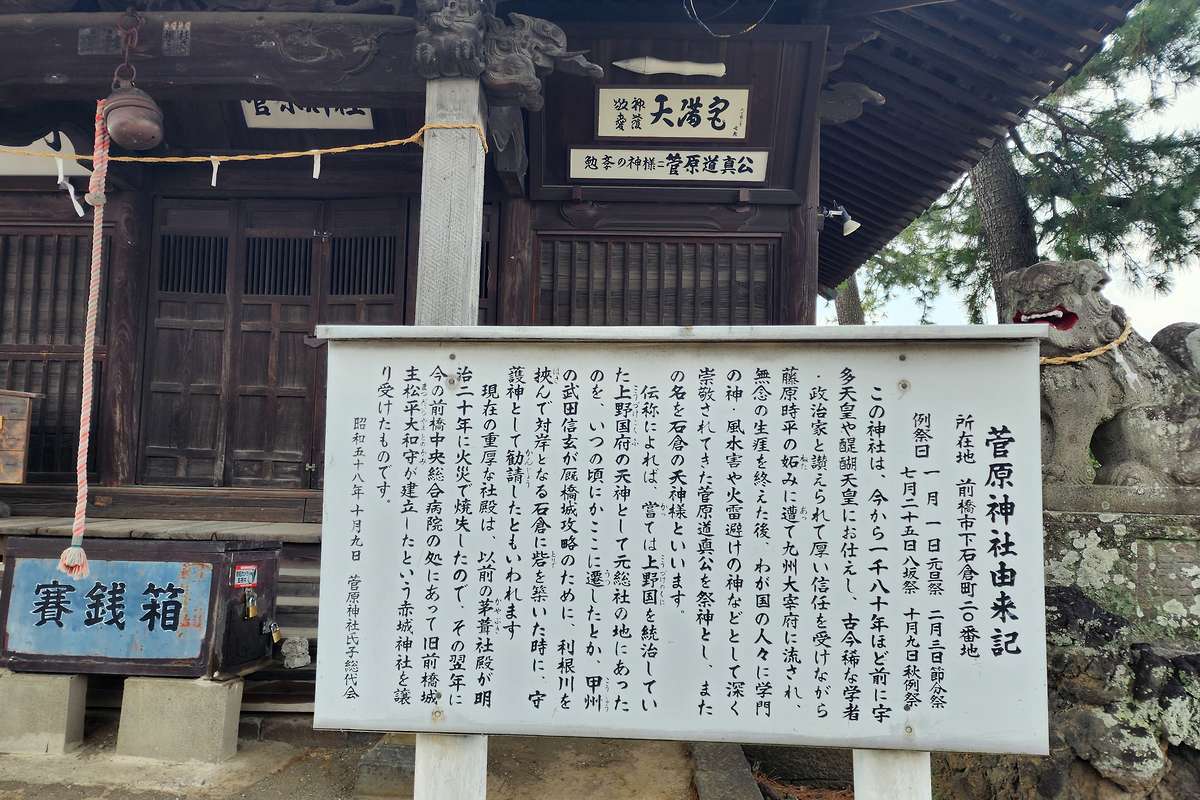 菅原神社由来記
所在地 前橋市下石倉町二〇番地
例祭日 一月一日元旦祭 二月三日節分祭
七月二十五日八坂祭 十月九日秋例祭
この神社は、今から一千八十年ほど前に宇
多天皇や醍醐天皇にお仕えし、古今稀な学者
・政治家と讃えられて厚い信任を受けながら
藤原時平の妬みに遭て九州大宰府に流され、
無念の生涯を終えた後、わが国の人々に学門
の神・風水害や火雷避けの神などとして深く
崇敬されてきた菅原道真公を祭神とし、また
の名を石倉の天神様といいます。
伝称によれば、嘗ては上野国を統治してい
た上野国府の天神として元総社の地にあった
のを、いつの頃にかここに遷したとか、甲州
の武田信玄が厩橋城攻略のために、利根川を
挟んで対岸となる石倉に砦を築いた時に、守
護神として勧請したともいわれます
現在の重厚な社殿は、以前の茅葺社殿が明
治二十年に火災で焼失したので、その翌年に
今の前橋中央総合病院の処にあって旧前橋城
主松平大和守が建立したという赤城神社を譲
り受けたものです。
昭和五十八年十月九日 菅原神社氏子総代会
天満宮
神護
敬愛
勉学の神様＝菅原道真公
賽銭箱